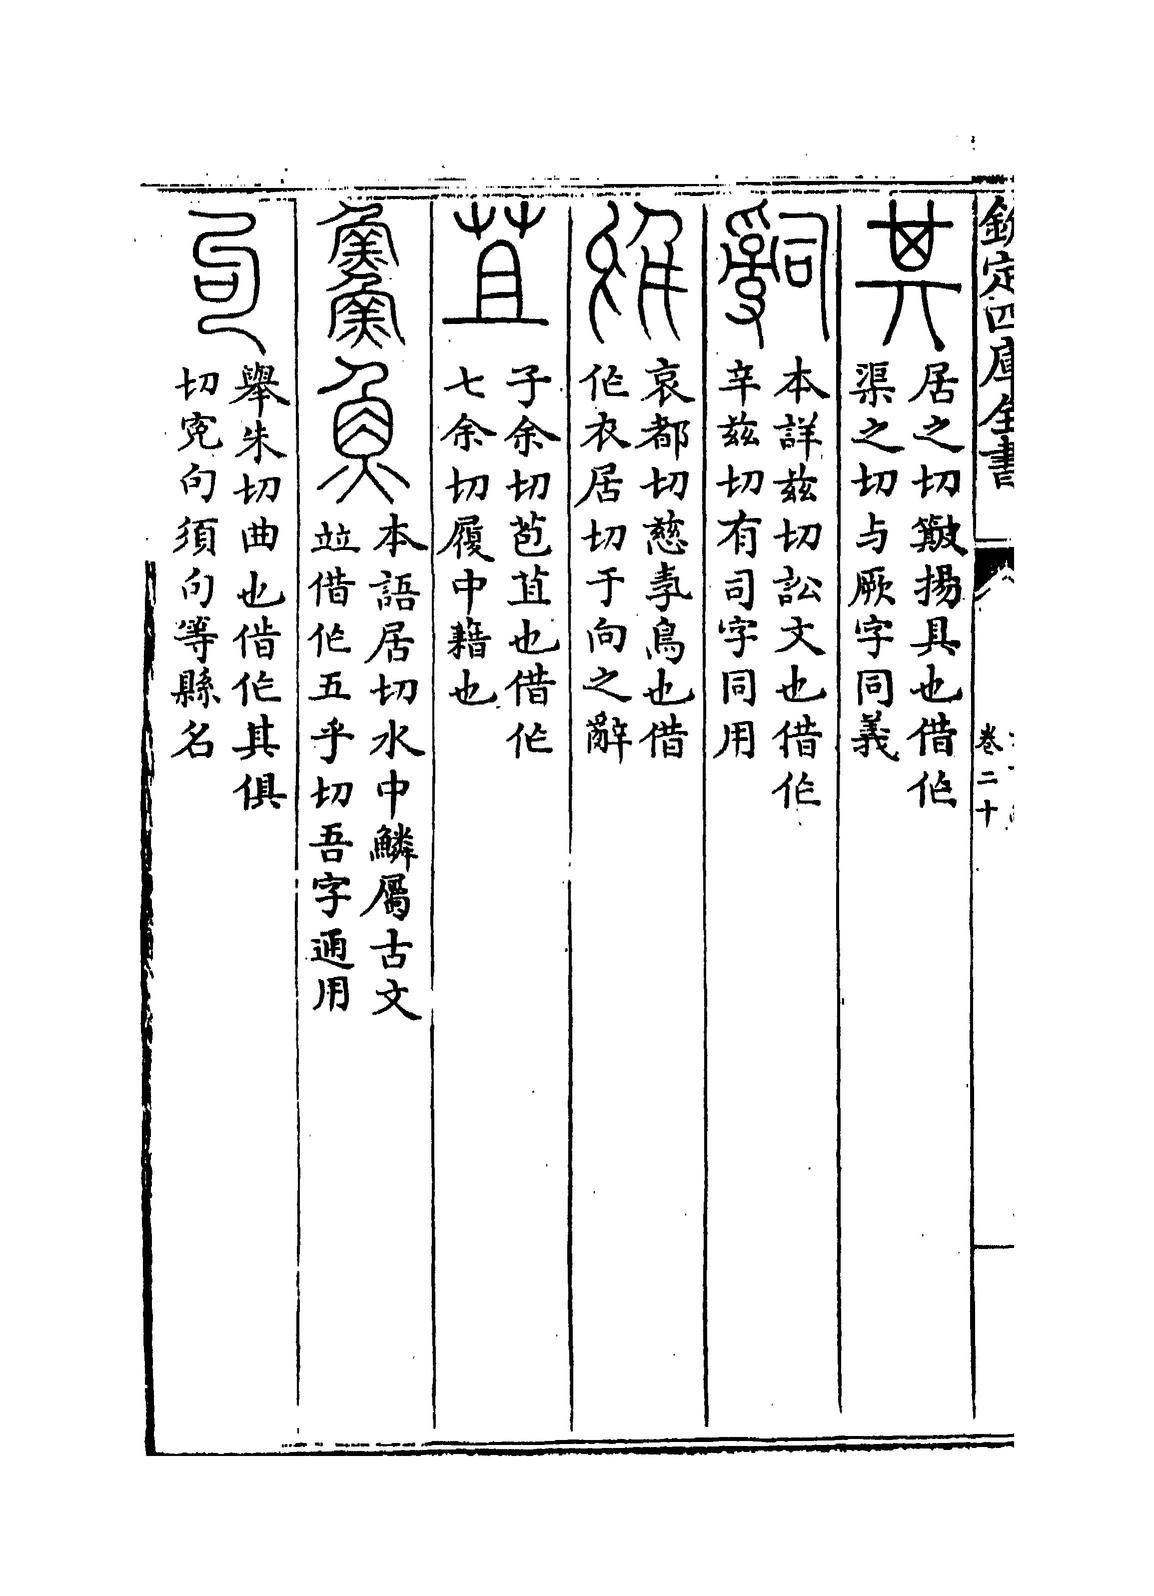 欽定四庫全書
卷二十
其
居之切簸揚具也借作
渠之切与厥字同義
本詳兹切訟文也借作
辛兹切有司字同用
哀都切慈孝鳥也借
作衣居切于向之辭
苴
子余切苞苴也借作
七余切履中藉也
魚
本語居切水中鱗屬古文
並借作五乎切吾字通用
句
舉朱切曲也借作其俱
切寃句須句等縣名